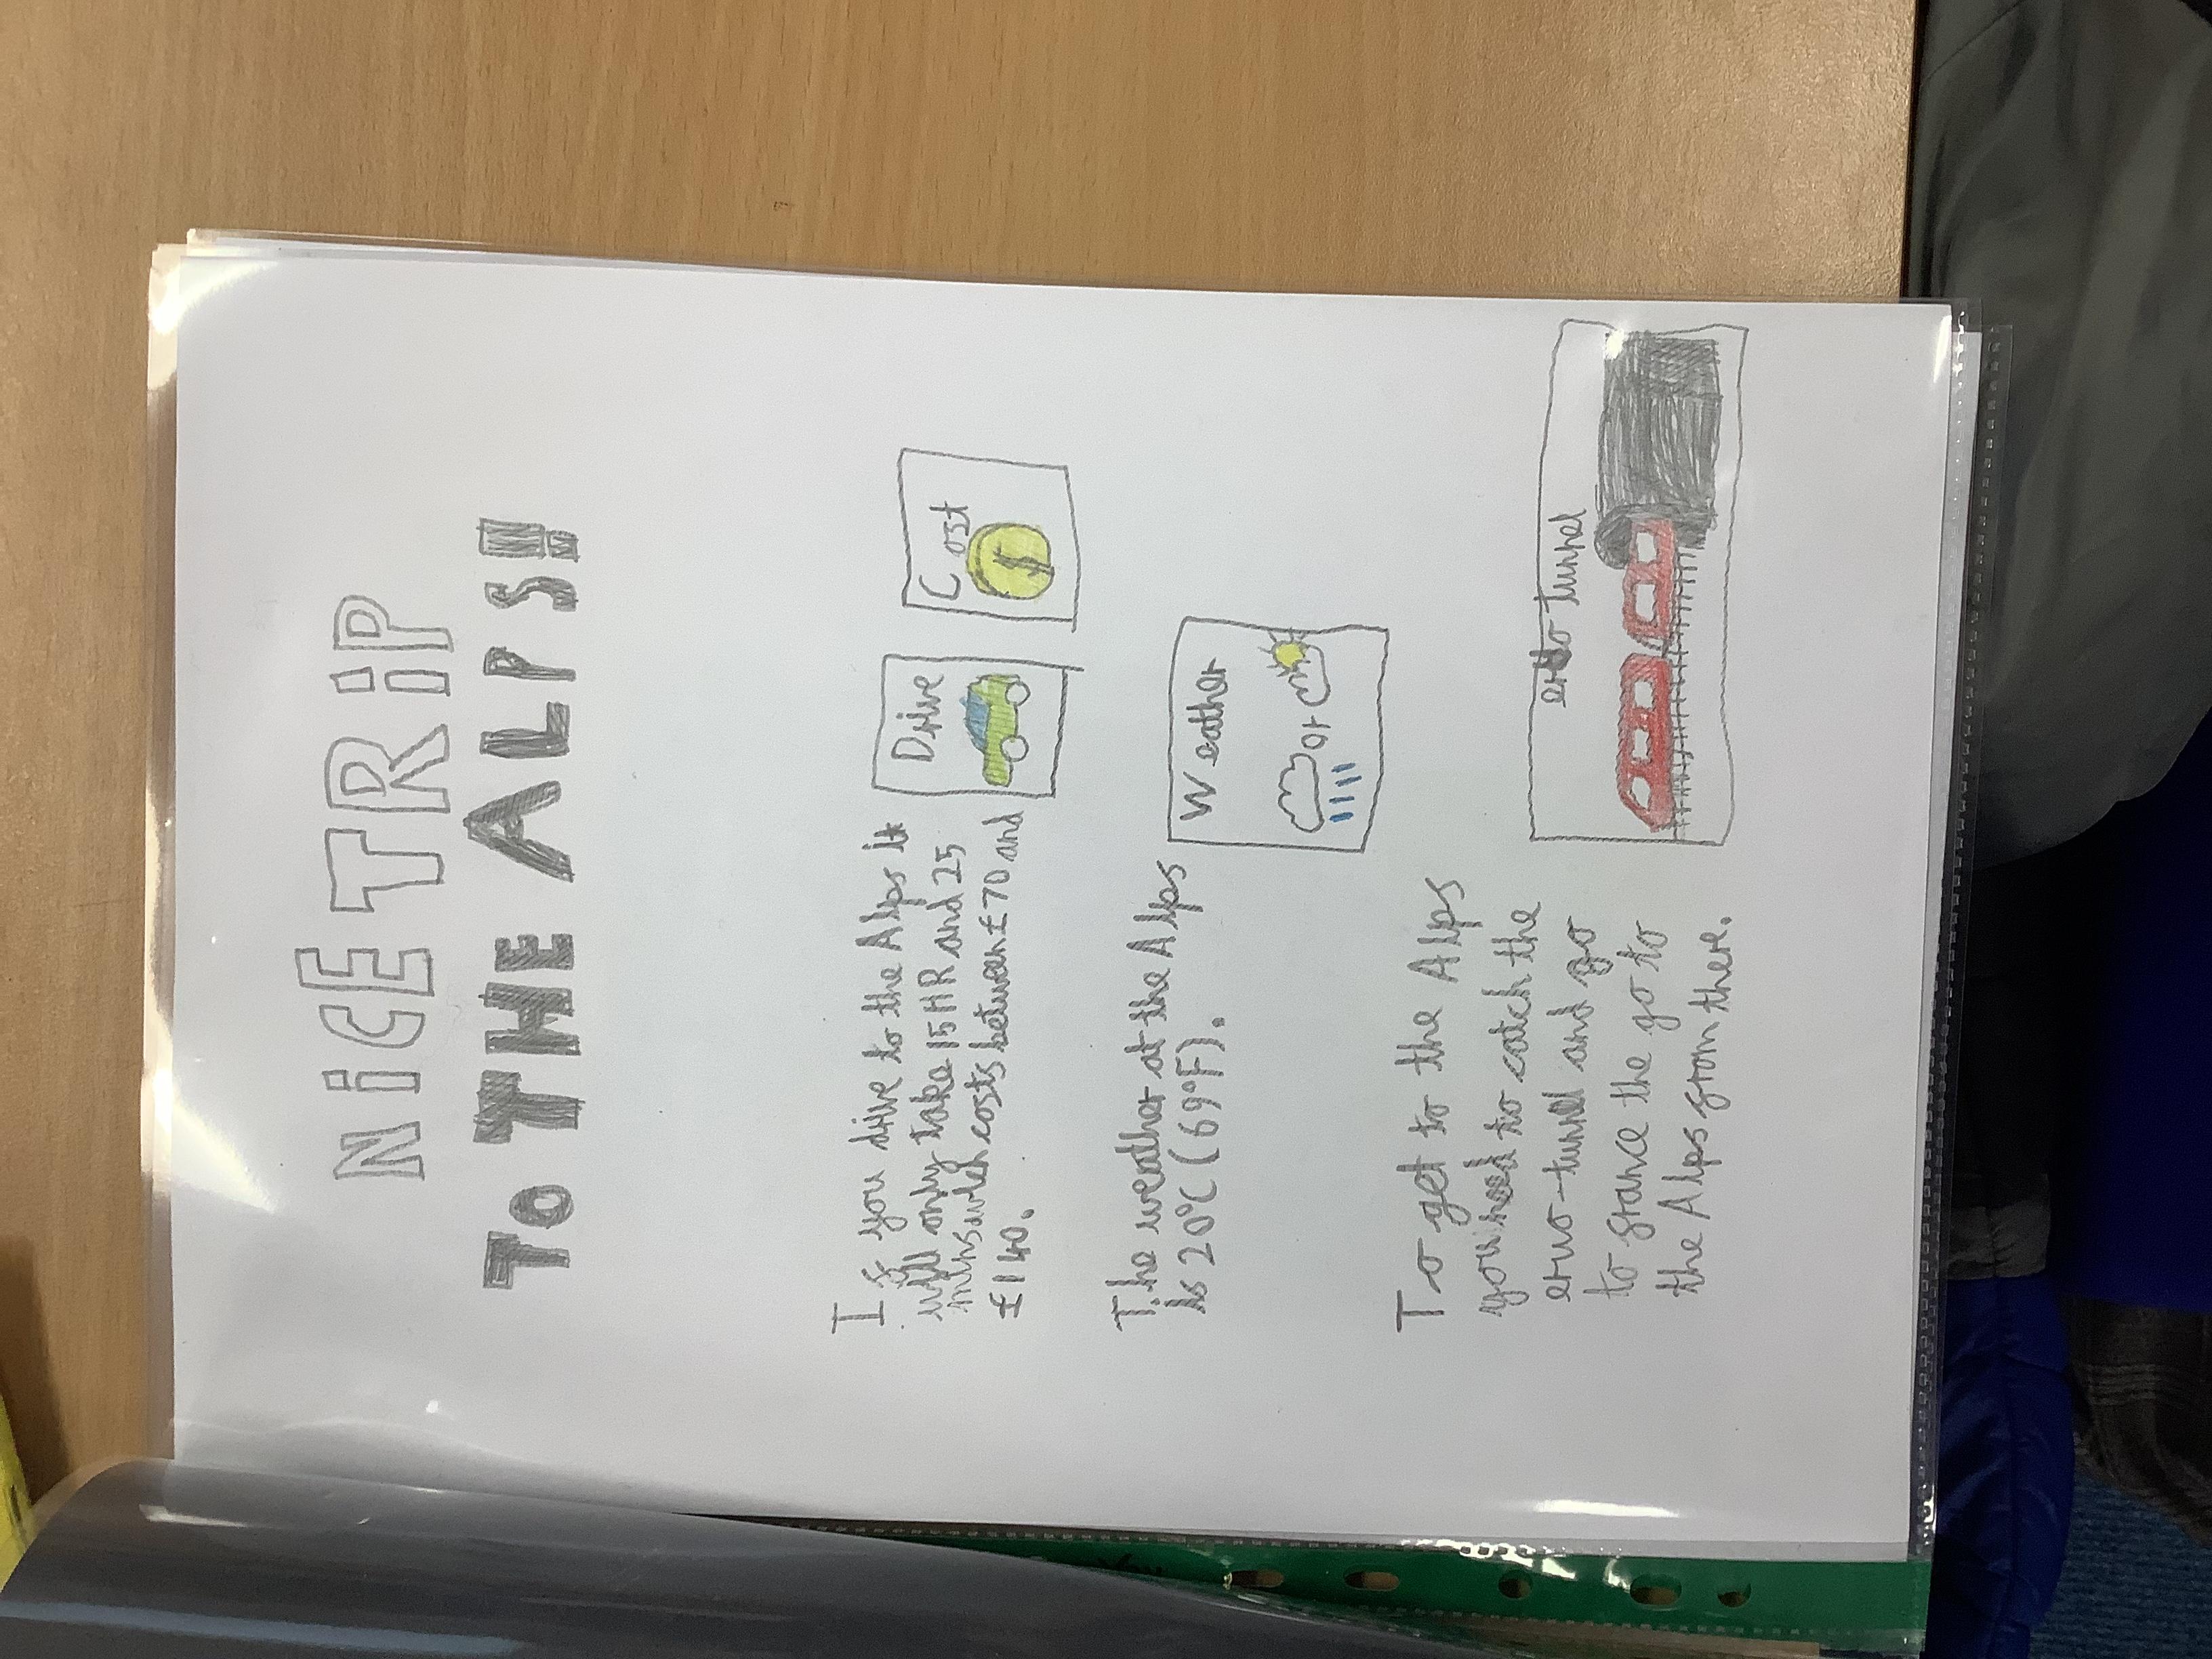 NiCE TRiP
To THE ALPS!
If you drive to the Alps it
will only take 15HR and 25
mins which costs between £70 and
£140.
Drive
Cost
$
The weather at the Alps
is 20°C (69°F).
Weather
or
To get to the Alps
you need to catch the
erwo-tunnel and go
to france the go to
the Alps from there.
erto tunnel